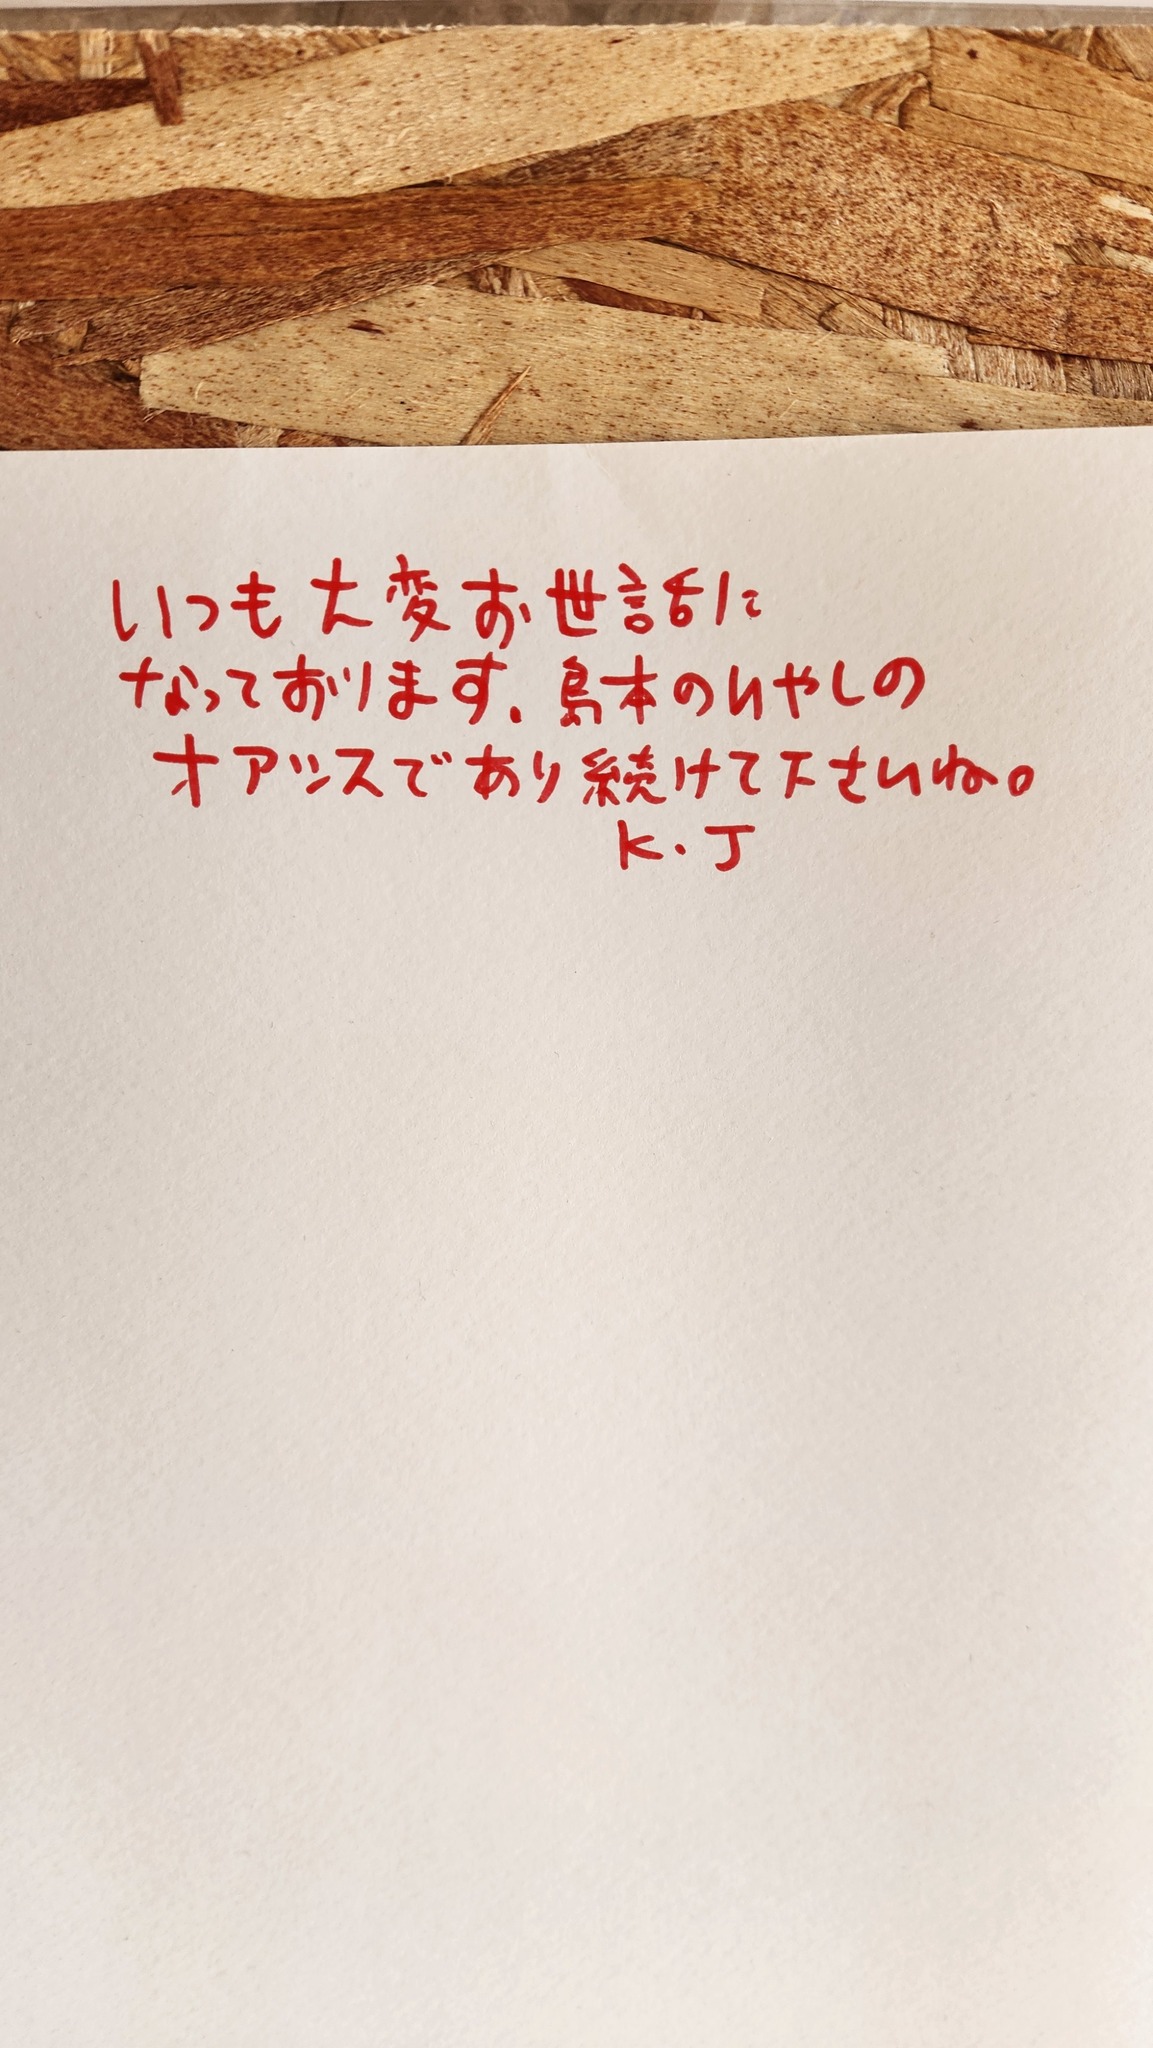 いつも大変お世話に
なっております. 島本のいやしの
オアシスであり続けて下さいね。
K.J